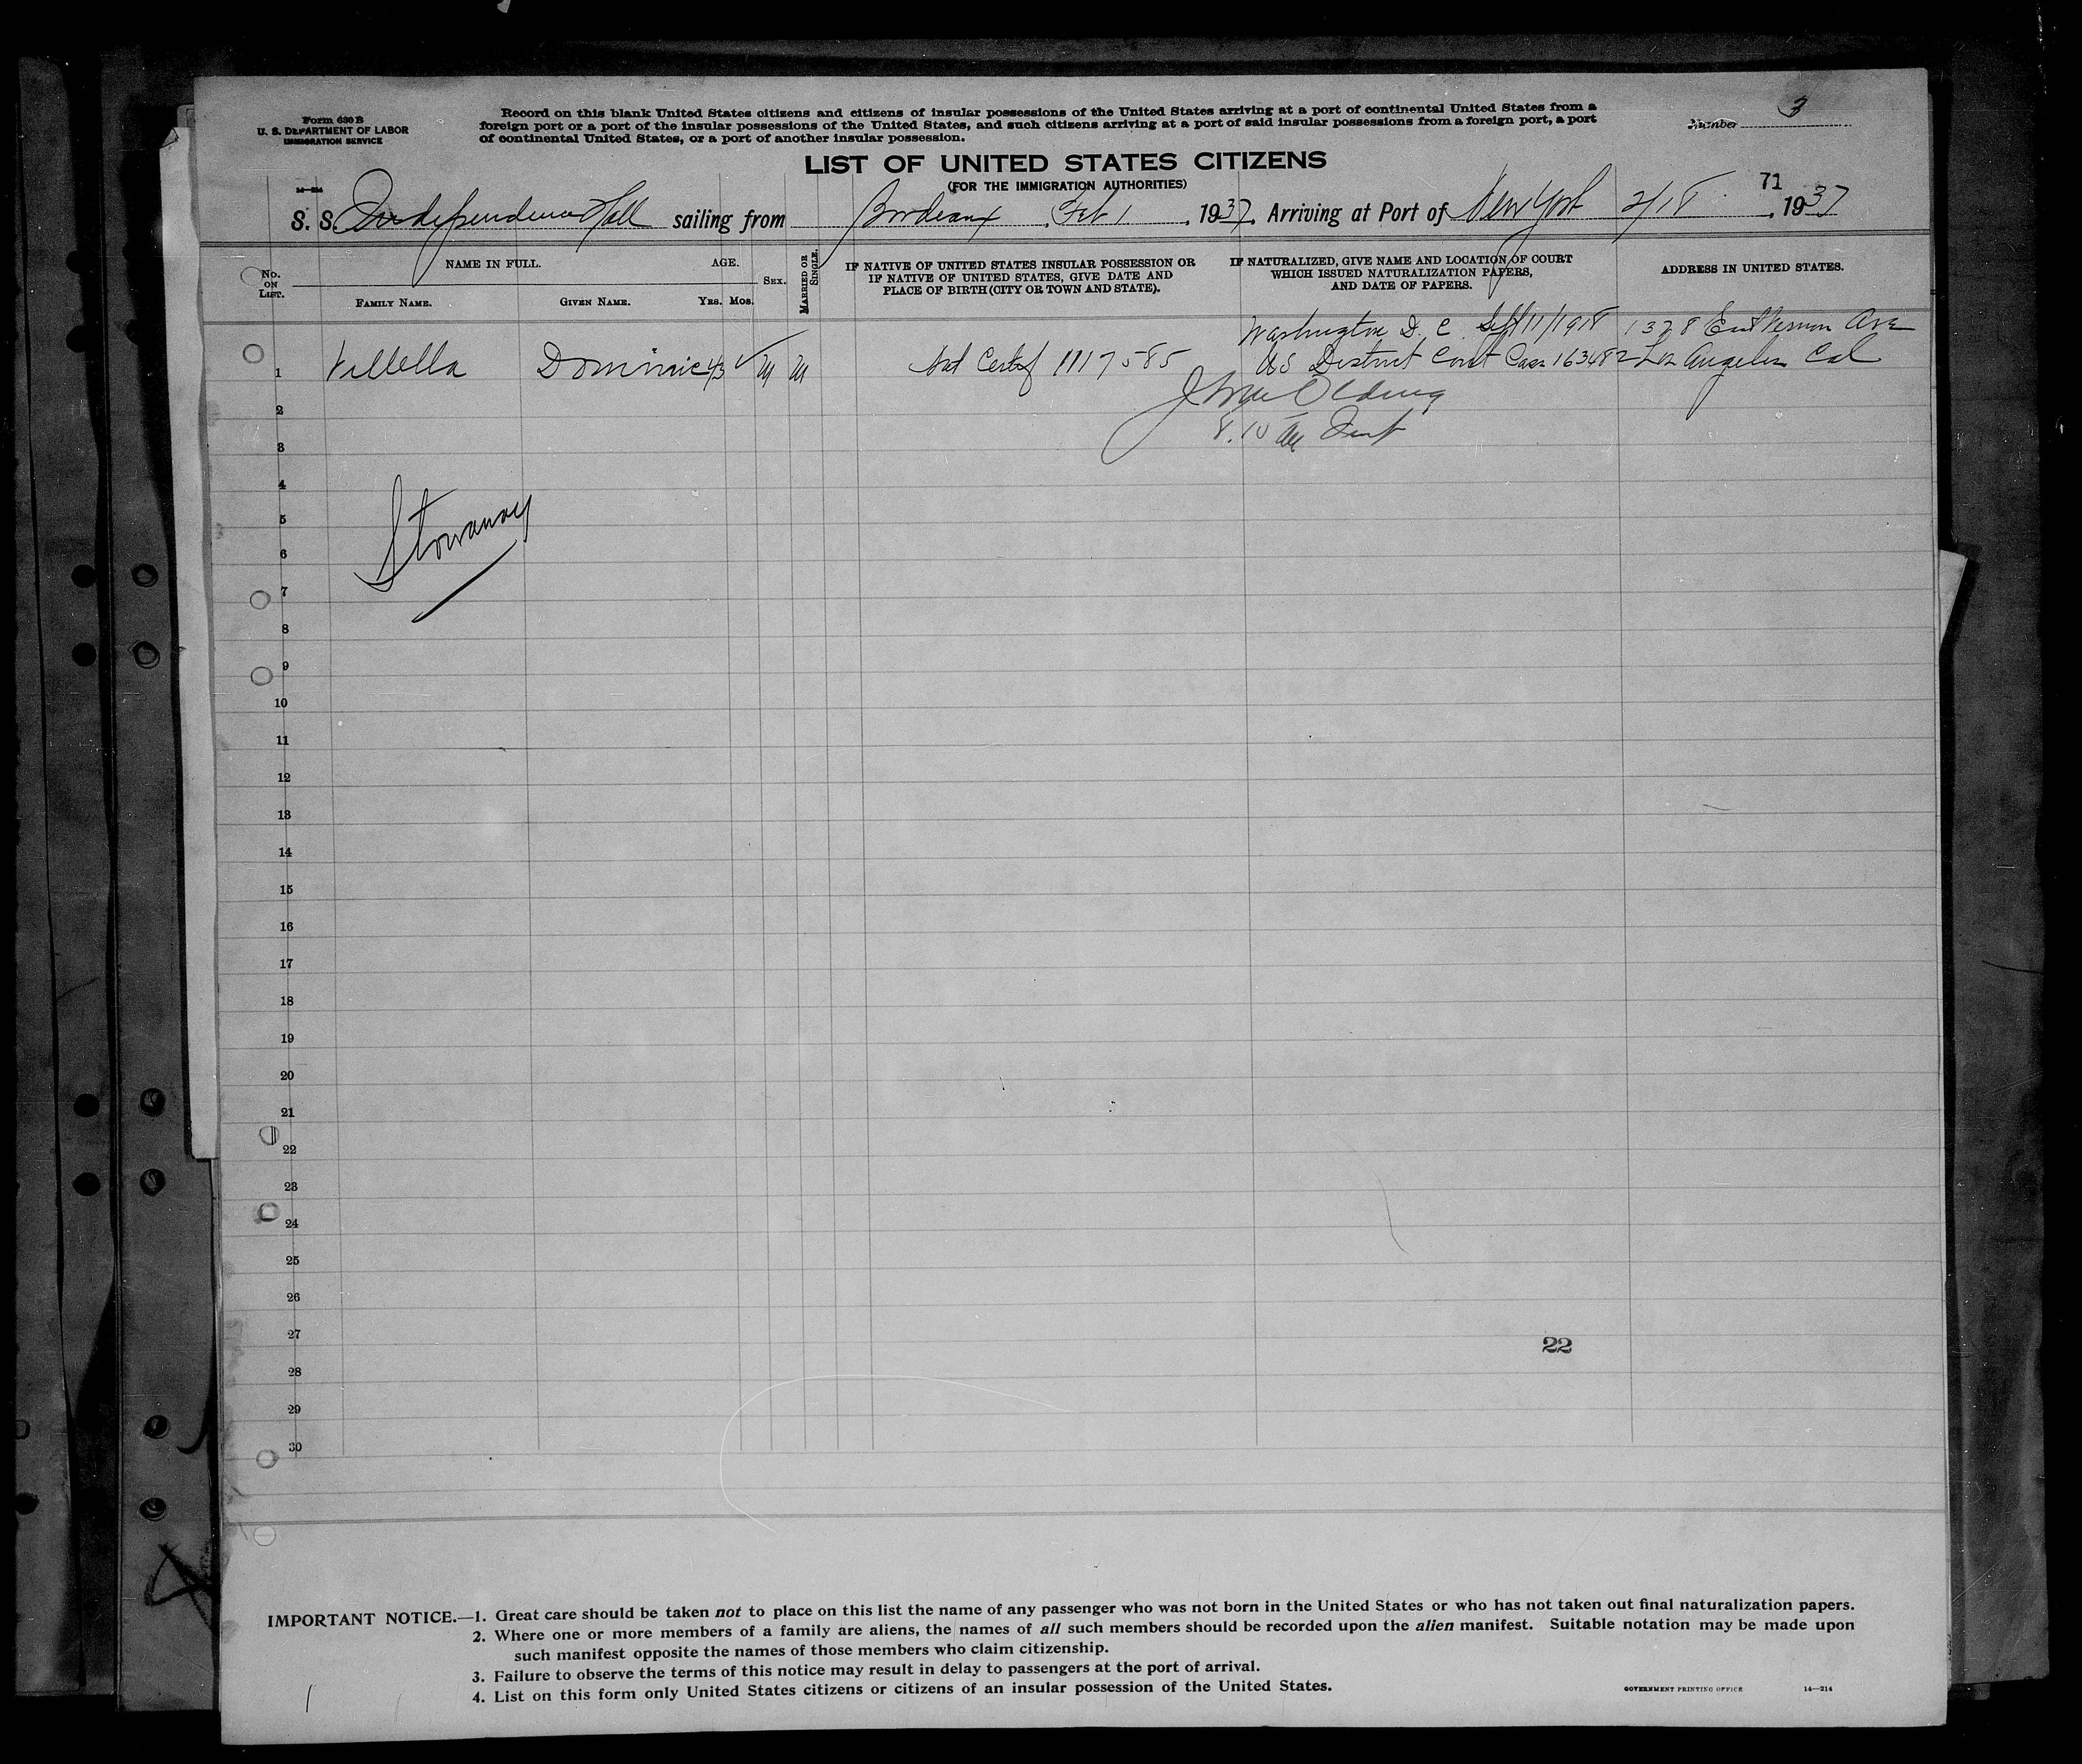 Form 630 B
U. S. DEPARTMENT OF LABOR
IMMIGRATION SERVICE
14—214
Record on this blank United States citizens and citizens of insular possessions of the United States arriving at a port of continental United States from a
foreign port or a port of the insular possessions of the United States, and such citizens arriving at a port of said insular possessions from a foreign port, a port
of continental United States, or a port of another insular possession.
Number 3
LIST OF UNITED STATES CITIZENS
(FOR THE IMMIGRATION AUTHORITIES)
71
S. S. Independence Hall sailing from Bordeaux, Feb 1, 1937, Arriving at Port of New York 2/18, 1937
No. ON LIST.
NAME IN FULL.
FAMILY NAME. GIVEN NAME.
AGE.
YRS. MOS.
SEX.
MARRIED OR SINGLE.
IF NATIVE OF UNITED STATES INSULAR POSSESSION OR
IF NATIVE OF UNITED STATES, GIVE DATE AND
PLACE OF BIRTH (CITY OR TOWN AND STATE).
IF NATURALIZED, GIVE NAME AND LOCATION OF COURT
WHICH ISSUED NATURALIZATION PAPERS,
AND DATE OF PAPERS.
ADDRESS IN UNITED STATES.
Washington D. C. Sept/11/1918 1328 East Vernon Ave
1 Vellella Dominic 43 M M Nat Certif 1117585 US District Court Case 163482 Los Angeles Cal
2
8.10 AM
3
4
Stowaway
5
6
7
8
9
10
11
12
13
14
15
16
17
18
19
20
21
22
23
24
25
26
27
22
28
29
30
IMPORTANT NOTICE.—1. Great care should be taken not to place on this list the name of any passenger who was not born in the United States or who has not taken out final naturalization papers.
2. Where one or more members of a family are aliens, the names of all such members should be recorded upon the alien manifest. Suitable notation may be made upon
such manifest opposite the names of those members who claim citizenship.
3. Failure to observe the terms of this notice may result in delay to passengers at the port of arrival.
4. List on this form only United States citizens or citizens of an insular possession of the United States.
GOVERNMENT PRINTING OFFICE 14—214